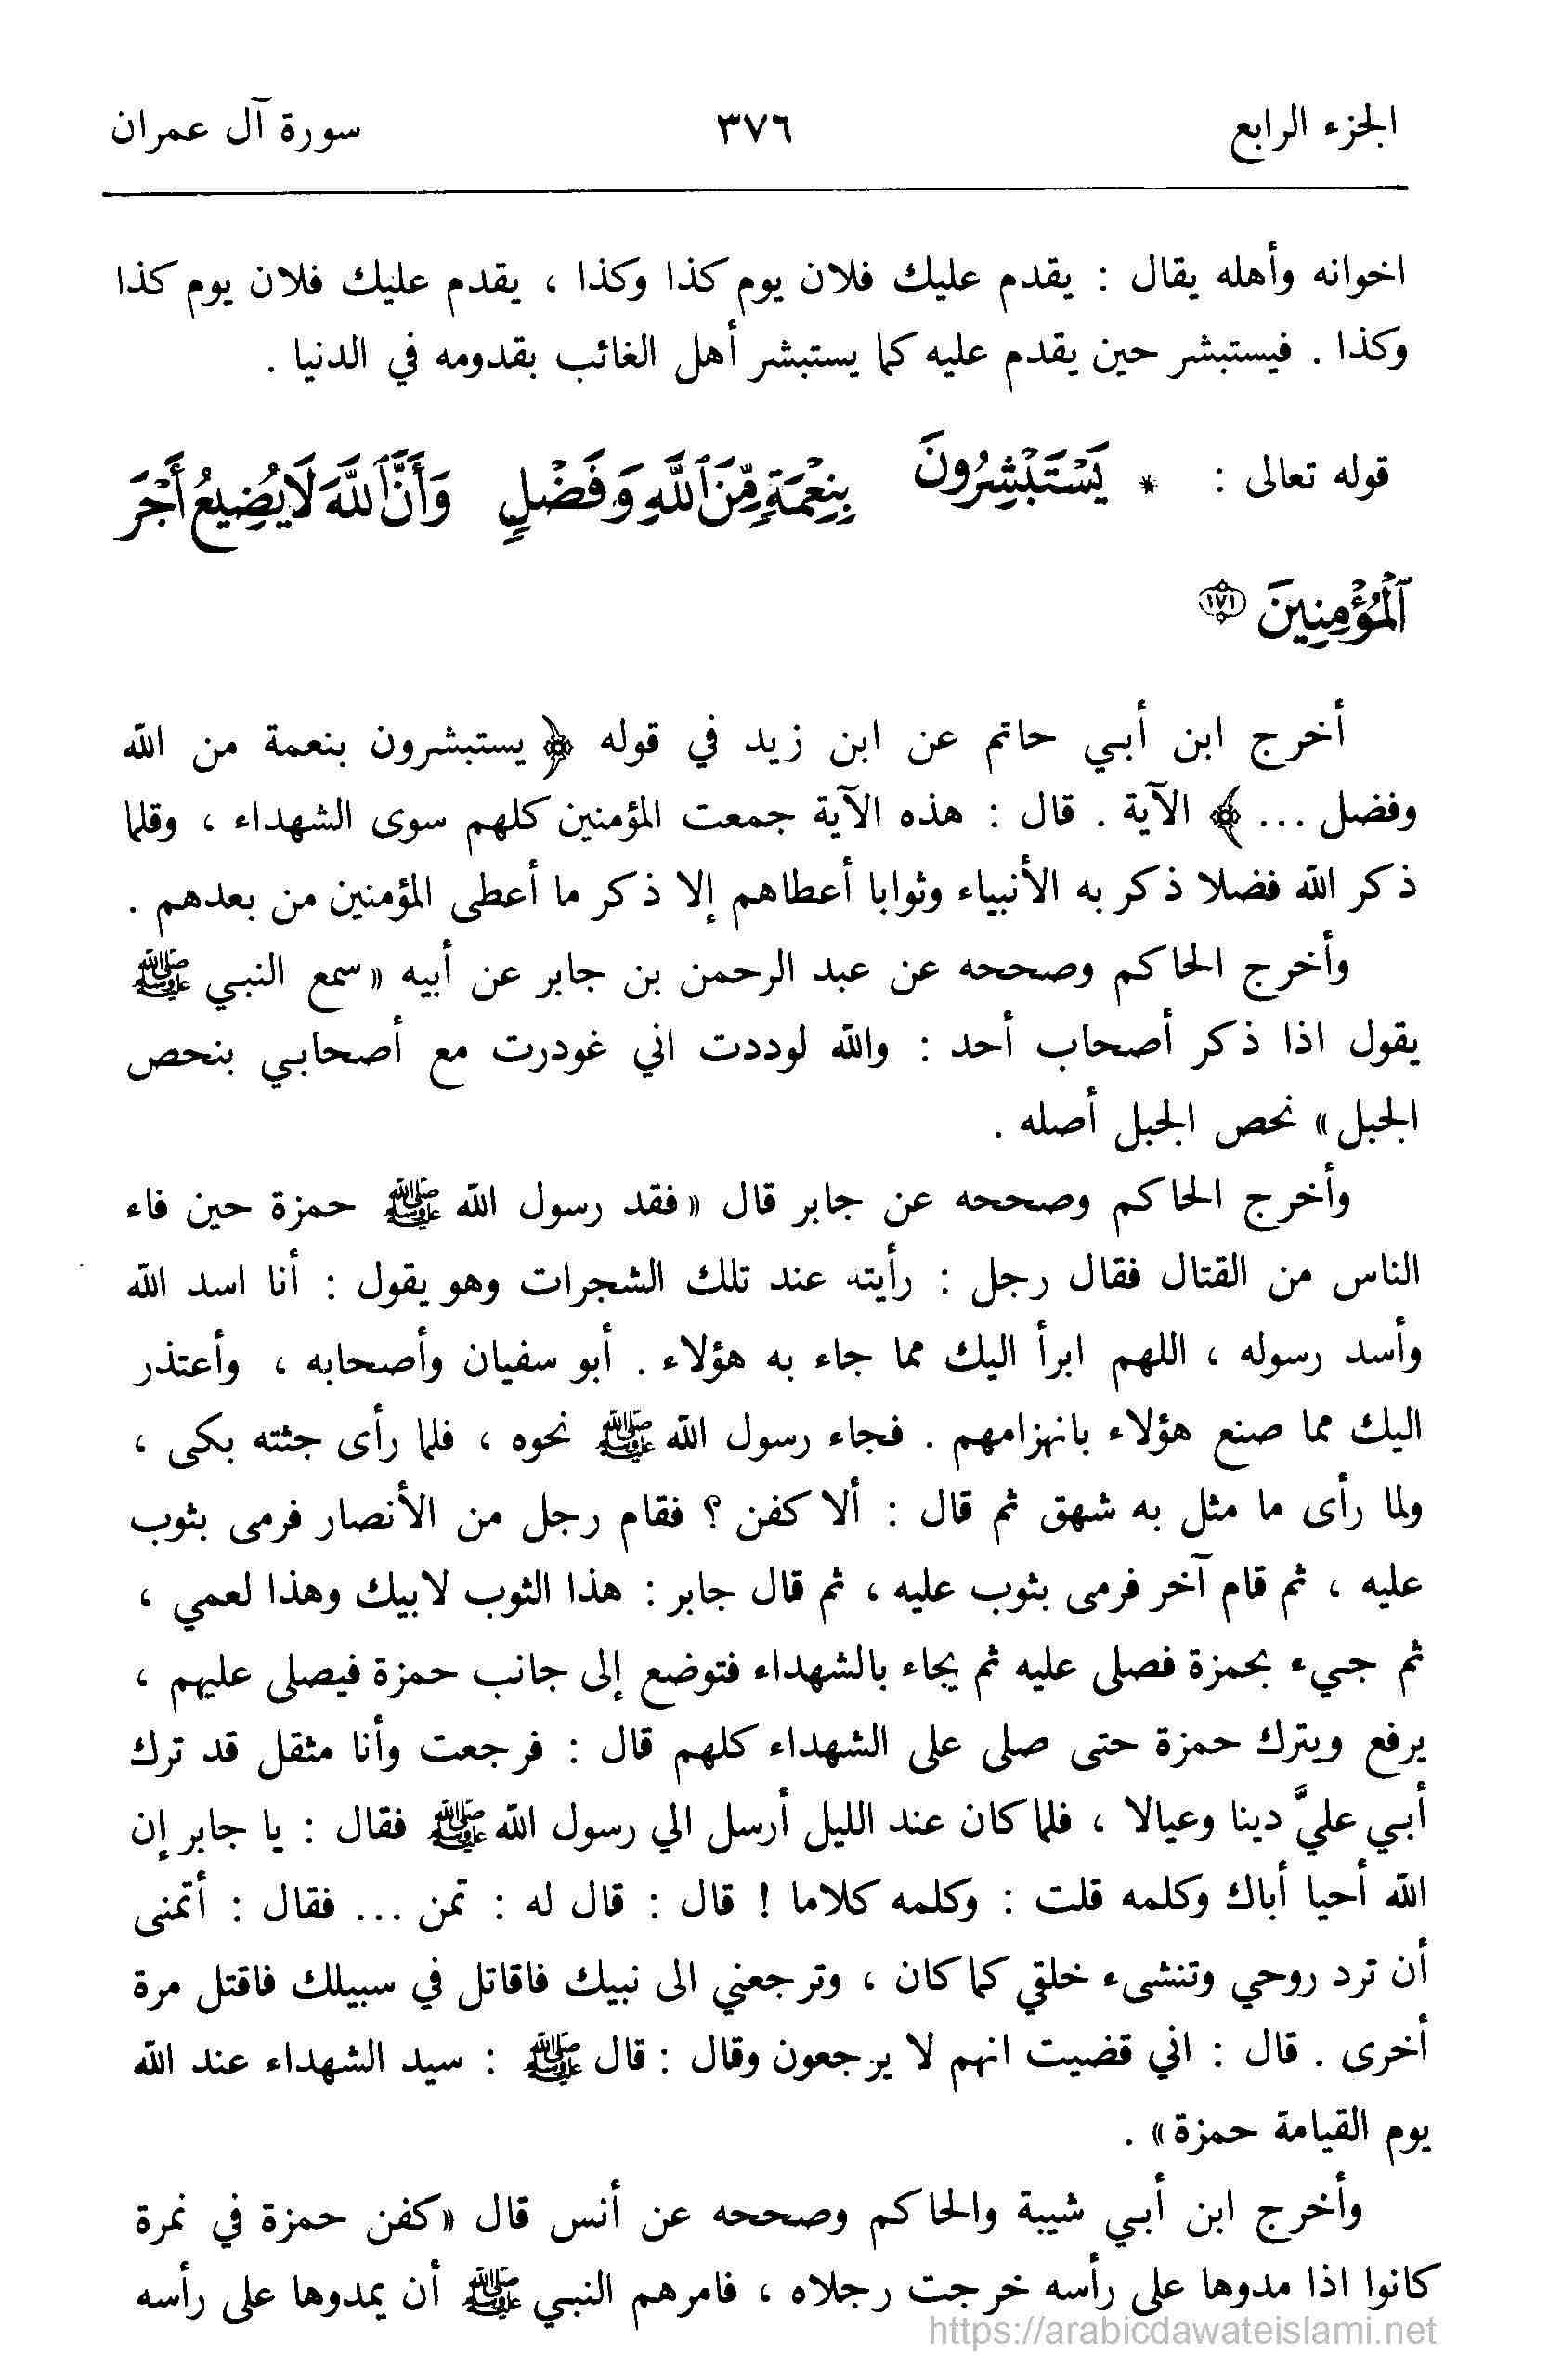 الجزء الرابع ٣٧٦ سورة آل عمران
اخوانه وأهله يقال : يقدم عليك فلان يوم كذا وكذا ، يقدم عليك فلان يوم كذا
وكذا . فيستبشر حين يقدم عليه كما يستبشر أهل الغائب بقدومه في الدنيا .
قوله تعالى : * يَسْتَبْشِرُونَ بِنِعْمَةٍ مِّنَ ٱللَّهِ وَفَضْلٍ وَأَنَّ ٱللَّهَ لَا يُضِيعُ أَجْرَ
ٱلْمُؤْمِنِينَ ١٧١
أخرج ابن أبي حاتم عن ابن زيد في قوله ﴿ يستبشرون بنعمة من الله
وفضل ... ﴾ الآية . قال : هذه الآية جمعت المؤمنين كلهم سوى الشهداء ، وقلما
ذكر الله فضلا ذكر به الأنبياء وثوابا أعطاهم إلا ذكر ما أعطى المؤمنين من بعدهم .
وأخرج الحاكم وصححه عن عبد الرحمن بن جابر عن أبيه « سمع النبي ﷺ
يقول اذا ذكر أصحاب أحد : والله لوددت اني غودرت مع أصحابي بنحص
الجبل » نحص الجبل أصله .
وأخرج الحاكم وصححه عن جابر قال « فقد رسول الله ﷺ حمزة حين فاء
الناس من القتال فقال رجل : رأيته عند تلك الشجرات وهو يقول : أنا اسد الله
وأسد رسوله ، اللهم ابرأ اليك مما جاء به هؤلاء . أبو سفيان وأصحابه ، وأعتذر
اليك مما صنع هؤلاء بانهزامهم . فجاء رسول الله ﷺ نحوه ، فلما رأى جثته بكى ،
ولما رأى ما مثل به شهق ثم قال : ألا كفن ؟ فقام رجل من الأنصار فرمى بثوب
عليه ، ثم قام آخر فرمى بثوب عليه ، ثم قال جابر : هذا الثوب لابيك وهذا لعمي ،
ثم جيء بحمزة فصلى عليه ثم يجاء بالشهداء فتوضع إلى جانب حمزة فيصلى عليهم ،
يرفع ويترك حمزة حتى صلى على الشهداء كلهم قال : فرجعت وأنا مثقل قد ترك
أبي عليَّ دينا وعيالا ، فلما كان عند الليل أرسل الي رسول الله ﷺ فقال : يا جابر إن
الله أحيا أباك وكلمه قلت : وكلمه كلاما ! قال : قال له : تمن ... فقال : أتمنى
أن ترد روحي وتنشىء خلقي كما كان ، وترجعني الى نبيك فاقاتل في سبيلك فاقتل مرة
أخرى . قال : اني قضيت انهم لا يرجعون وقال : قال ﷺ : سيد الشهداء عند الله
يوم القيامة حمزة » .
وأخرج ابن أبي شيبة والحاكم وصححه عن أنس قال « كفن حمزة في نمرة
كانوا اذا مدوها على رأسه خرجت رجلاه ، فامرهم النبي ﷺ أن يمدوها على رأسه
https://arabicdawateislami.net